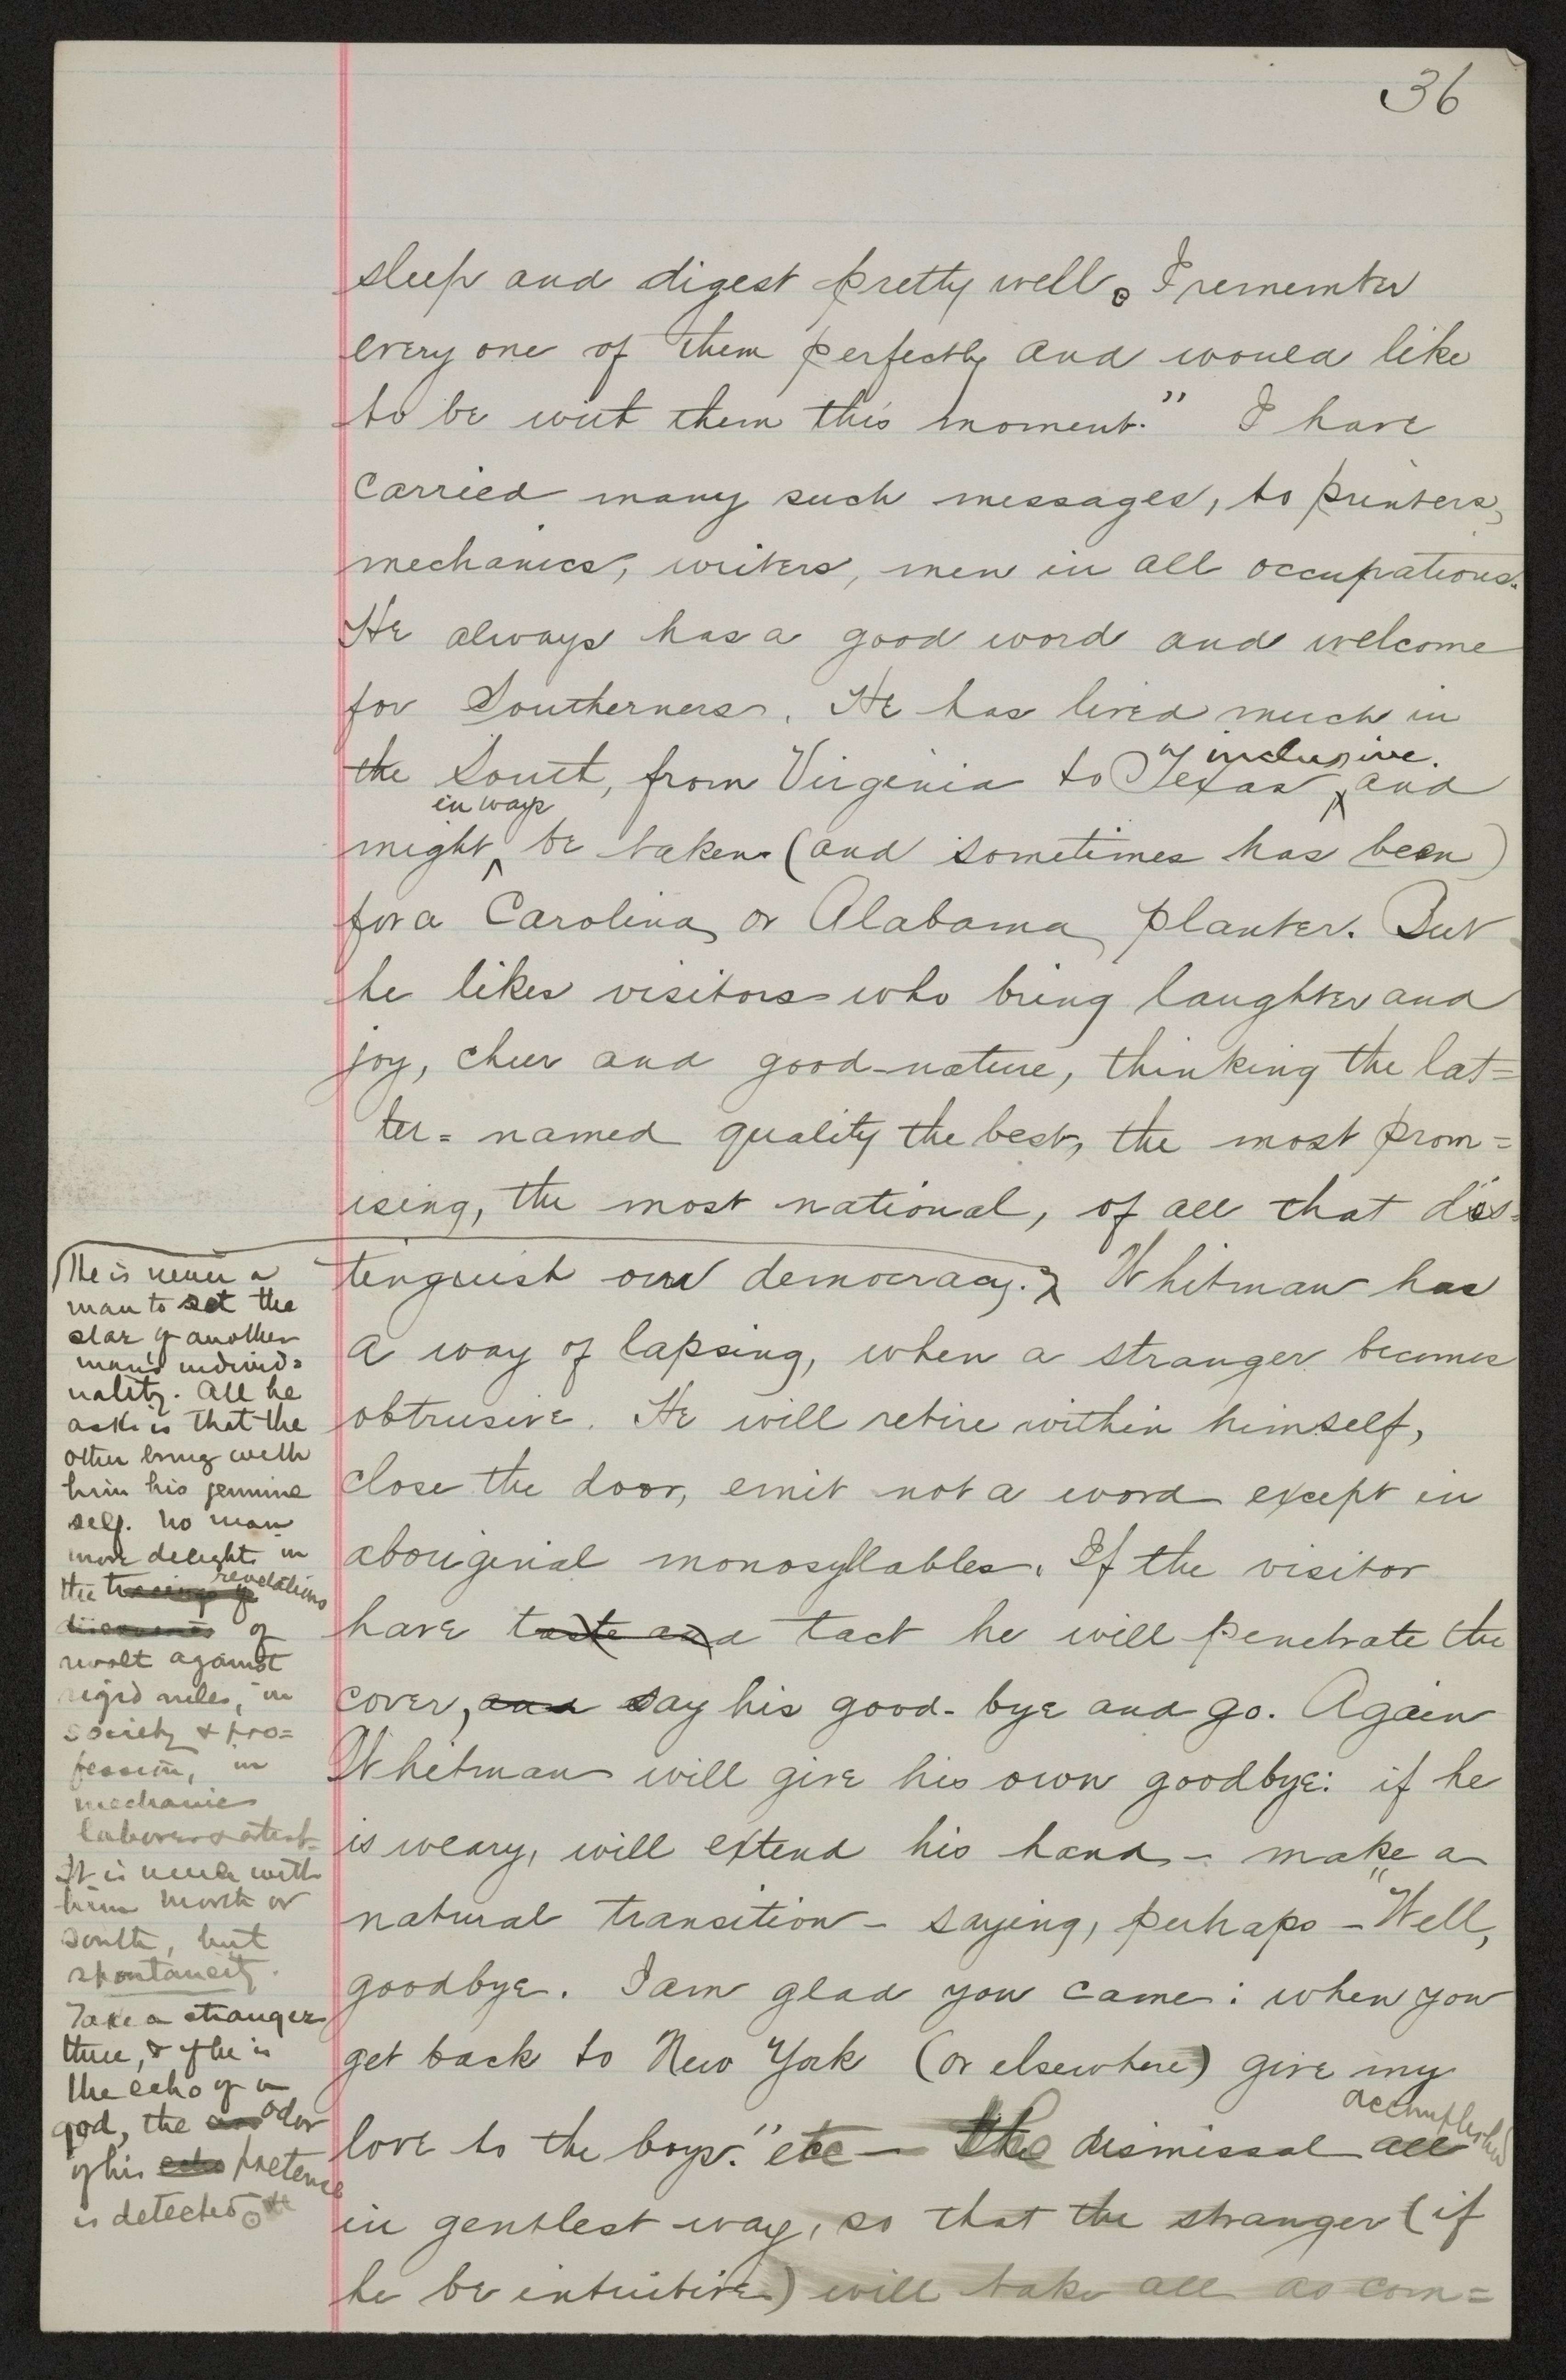 36
sleep and digest pretty well. I remember
every one of them perfectly and would like
to be with them this moment." I have
carried many such messages, to printers,
mechanics, writers, men in all occupations.
He always has a good word and welcome
for Southerners. He has lived much in
inclusive.
the South, from Virginia to Texas ‸ and
in ways
might ‸ be taken (and sometimes has been)
for a Carolina or Alabama planter. But
he likes visitors who bring laughter and
joy, cheer and good-nature, thinking the lat=
ter=named quality the best, the most prom=
ising, the most national, of all that dis=
tinguish our democracy. Whitman has
a way of lapsing, when a stranger becomes
obtrusive. He will retire within himself,
close the door, emit not a word except in
aboriginal monosyllables. If the visitor
have taste and tact he will penetrate the
cover, and say his good-bye and go. Again
Whitman will give his own goodbye: if he
is weary, will extend his hand – make a
natural transition – saying, perhaps – "Well,
goodbye. I am glad you came: when you
get back to New York (or elsewhere) give my
love to the boys." etc — the dismissal all
accomplished
in gentlest way, so that the stranger (if
he be intuitive) will take all as com=
He is never a
man to set the
star of another
man's individ=
uality. All he
asks is that the
other bring with
him his genuine
self. No man
more delights in
the tracings of revelations
of
revolt against
rigid rules, in
society & pro=
fession, in
mechanic
laborer & artist.
It is never with
him North or
South, but
spontaneity.
Take a stranger
there, & if he is
the echo of a
god, the odor
of his echo pretence
is detected.